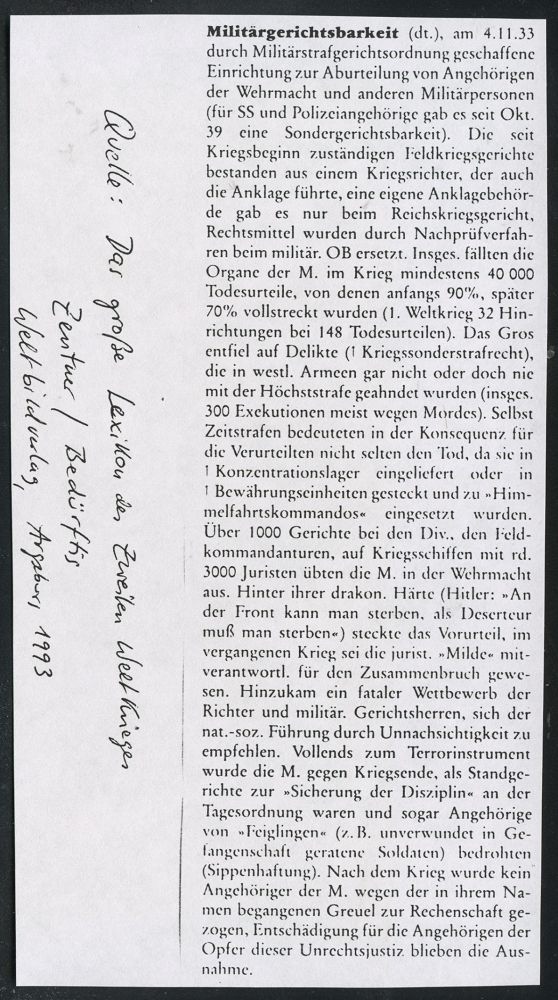 Militärgerichtsbarkeit (dt.), am 4.11.33
durch Militärstrafgerichtsordnung geschaffene
Einrichtung zur Aburteilung von Angehörigen
der Wehrmacht und anderen Militärpersonen
(für SS und Polizeiangehörige gab es seit Okt.
39 eine Sondergerichtsbarkeit). Die seit
Kriegsbeginn zuständigen Feldkriegsgerichte
bestanden aus einem Kriegsrichter, der auch
die Anklage führte, eine eigene Anklagebehör-
de gab es nur beim Reichskriegsgericht,
Rechtsmittel wurden durch Nachprüfverfah-
ren beim militär. OB ersetzt. Insges. fällten die
Organe der M. im Krieg mindestens 40 000
Todesurteile, von denen anfangs 90%, später
70% vollstreckt wurden (1. Weltkrieg 32 Hin-
richtungen bei 148 Todesurteilen). Das Gros
entfiel auf Delikte (↑ Kriegssonderstrafrecht),
die in westl. Armeen gar nicht oder doch nie
mit der Höchststrafe geahndet wurden (insges.
300 Exekutionen meist wegen Mordes). Selbst
Zeitstrafen bedeuteten in der Konsequenz für
die Verurteilten nicht selten den Tod, da sie in
↑ Konzentrationslager eingeliefert oder in
↑ Bewährungseinheiten gesteckt und zu »Him-
melfahrtskommandos« eingesetzt wurden.
Über 1000 Gerichte bei den Div., den Feld-
kommandanturen, auf Kriegsschiffen mit rd.
3000 Juristen übten die M. in der Wehrmacht
aus. Hinter ihrer drakon. Härte (Hitler: »An
der Front kann man sterben, als Deserteur
muß man sterben«) steckte das Vorurteil, im
vergangenen Krieg sei die jurist. »Milde« mit-
verantwortl. für den Zusammenbruch gewe-
sen. Hinzukam ein fataler Wettbewerb der
Richter und militär. Gerichtsherren, sich der
nat.-soz. Führung durch Unnachsichtigkeit zu
empfehlen. Vollends zum Terrorinstrument
wurde die M. gegen Kriegsende, als Standge-
richte zur »Sicherung der Disziplin« an der
Tagesordnung waren und sogar Angehörige
von »Feiglingen« (z. B. unverwundet in Ge-
fangenschaft geratene Soldaten) bedrohten
(Sippenhaftung). Nach dem Krieg wurde kein
Angehöriger der M. wegen der in ihrem Na-
men begangenen Greuel zur Rechenschaft ge-
zogen, Entschädigung für die Angehörigen der
Opfer dieser Unrechtsjustiz blieben die Aus-
nahme.
Quelle: Das große Lexikon des Zweiten Weltkrieges
Zentner / Bedürftig
Weltbildverlag, Augsburg 1993